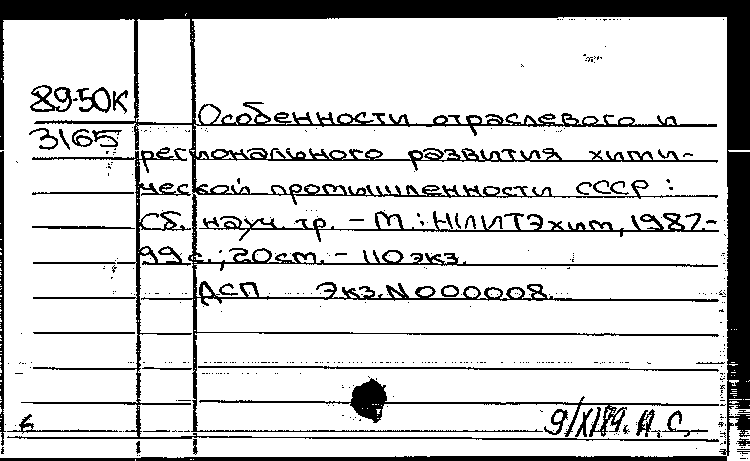 89-50К
3165
Особенности отраслевого и
регионального развития хими-
ческой промышленности СССР :
Сб. науч. тр. - М.: НИИТЭхим, 1987.-
99 с.; 20 см. - 110 экз.
ДСП Экз.N000008.
6
9/XI 89. А. С.